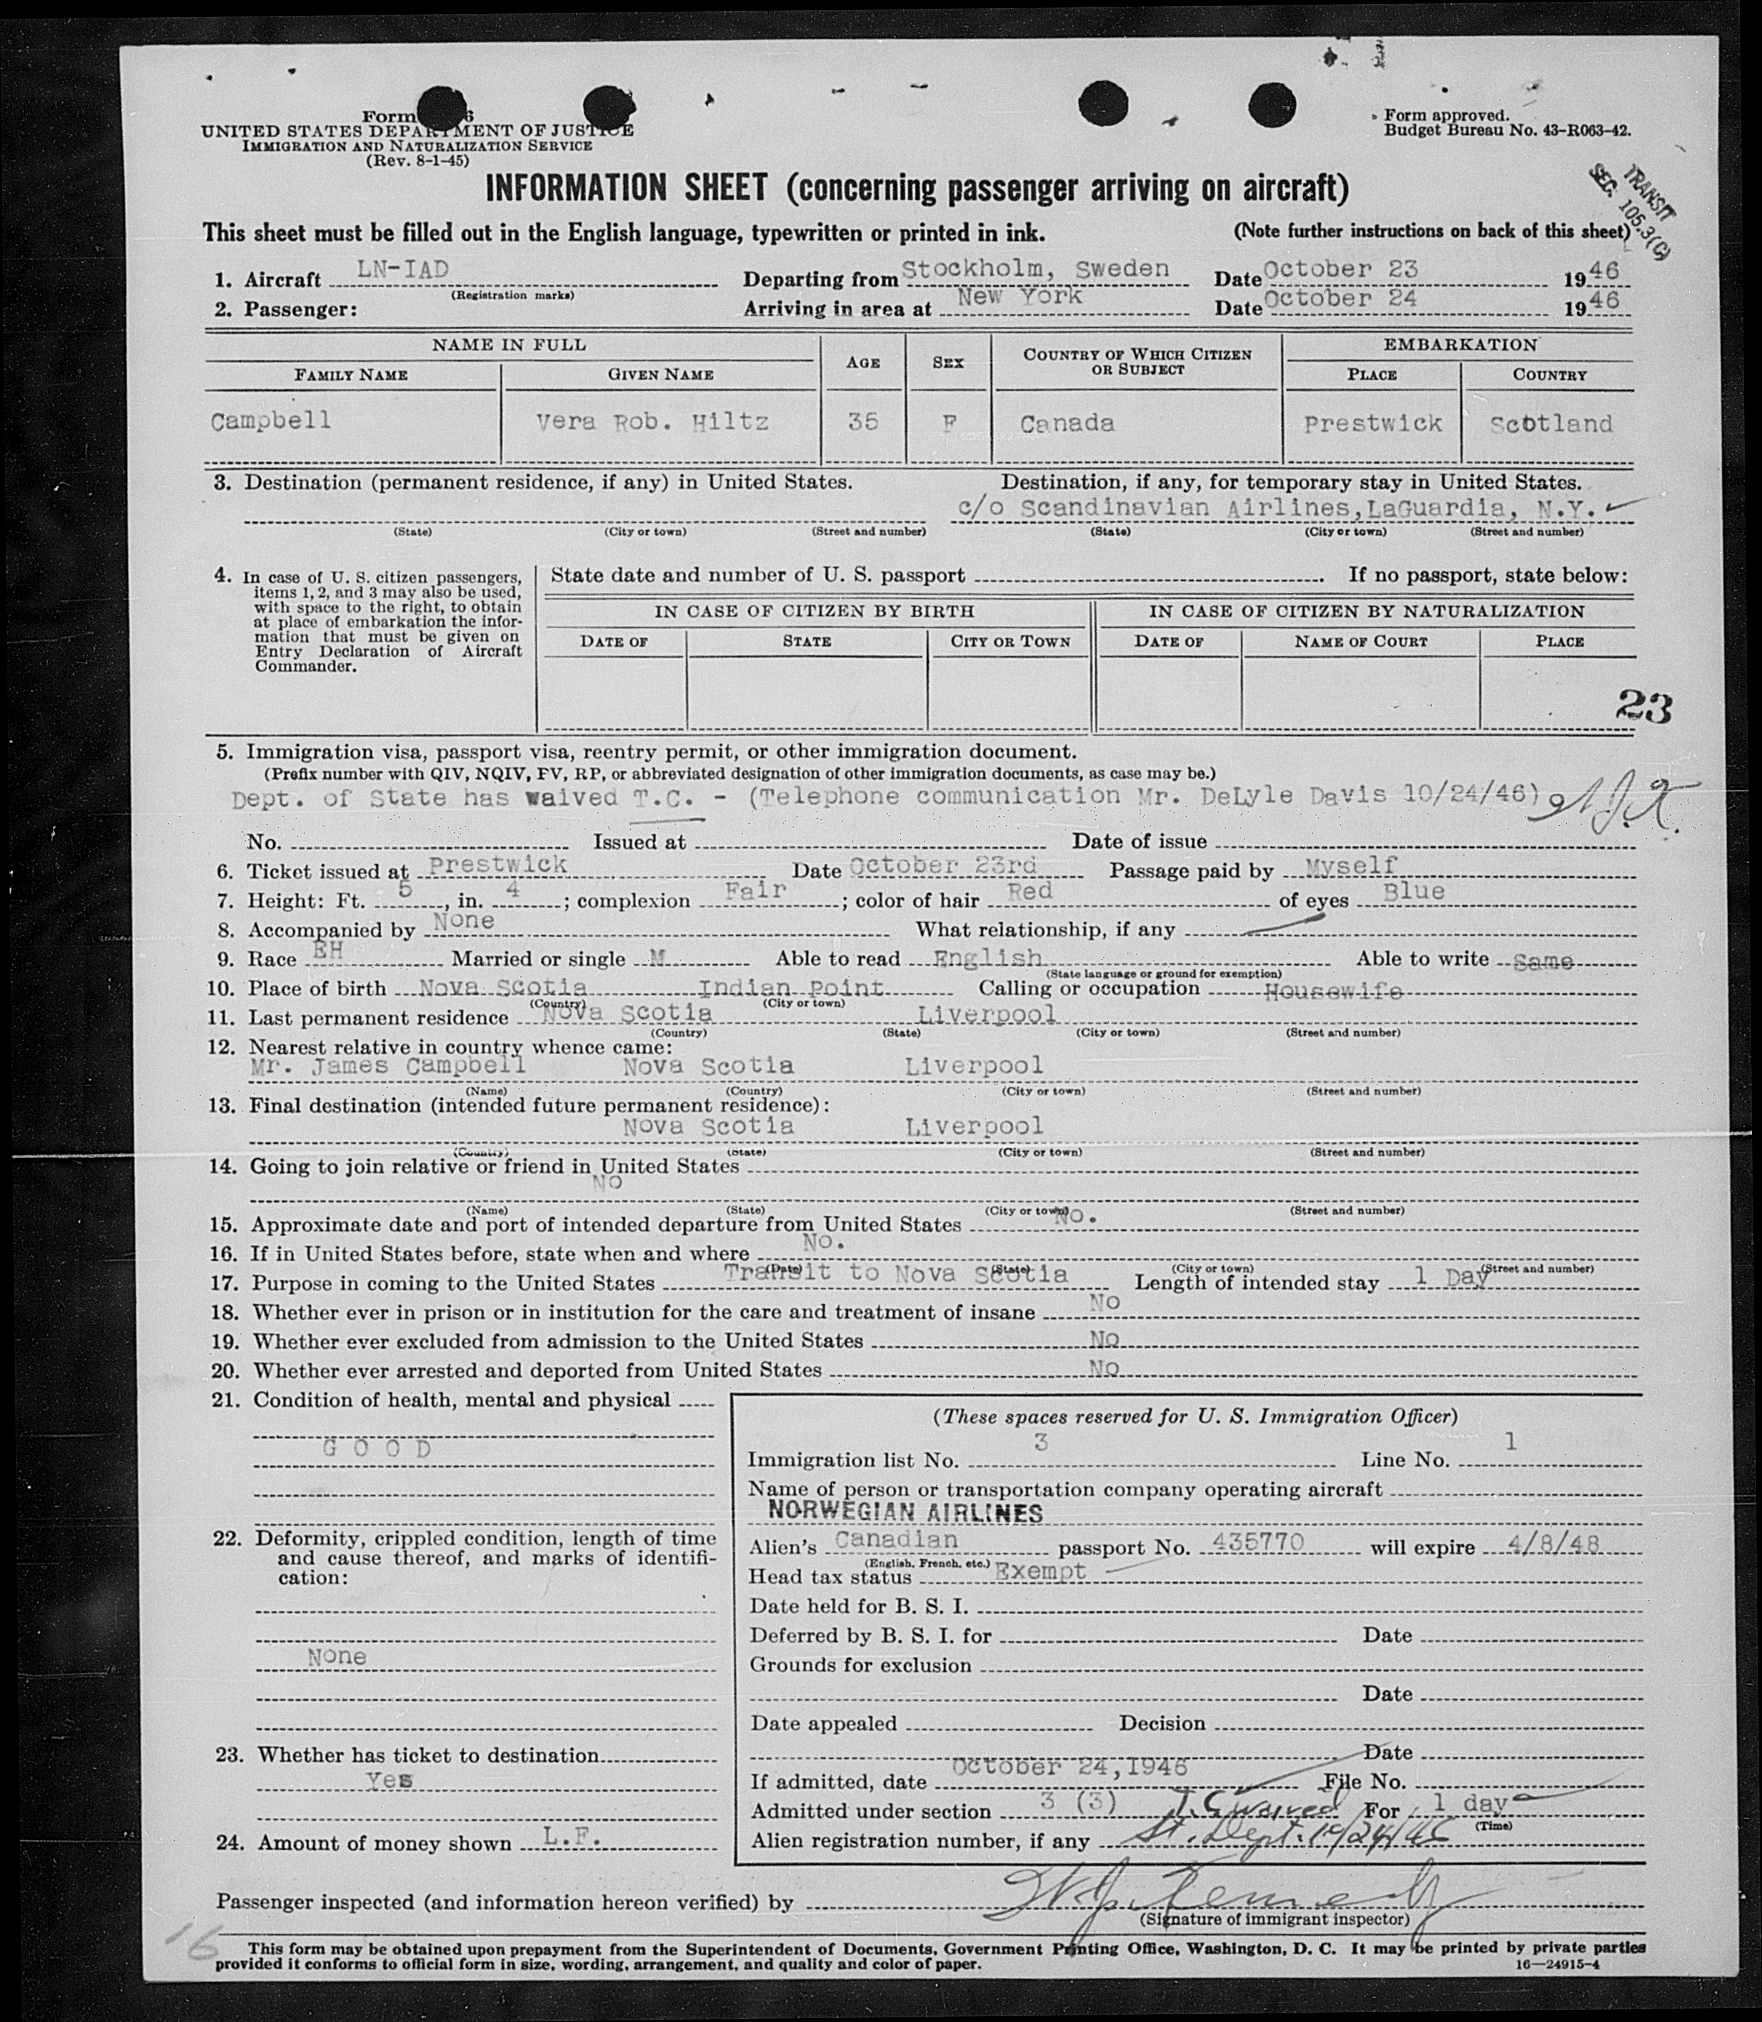 Form
UNITED STATES DEPARTMENT OF JUSTICE
IMMIGRATION AND NATURALIZATION SERVICE
(Rev. 8-1-45)
Form approved.
Budget Bureau No. 43-R063-42.
TRANSIT
SEC. 105.3(C)
INFORMATION SHEET (concerning passenger arriving on aircraft)
This sheet must be filled out in the English language, typewritten or printed in ink. (Note further instructions on back of this sheet)
1. Aircraft LN-IAD Departing from Stockholm, Sweden Date October 23 1946
(Registration marks)
2. Passenger: Arriving in area at New York Date October 24 1946
NAME IN FULL AGE SEX COUNTRY OF WHICH CITIZEN OR SUBJECT EMBARKATION
FAMILY NAME GIVEN NAME PLACE COUNTRY
Campbell Vera Rob. Hiltz 35 F Canada Prestwick Scotland
3. Destination (permanent residence, if any) in United States. Destination, if any, for temporary stay in United States.
c/o Scandinavian Airlines, LaGuardia, N.Y.
(State) (City or town) (Street and number) (State) (City or town) (Street and number)
4. In case of U. S. citizen passengers, items 1, 2, and 3 may also be used, with space to the right, to obtain at place of embarkation the information that must be given on Entry Declaration of Aircraft Commander.
State date and number of U. S. passport . If no passport, state below:
IN CASE OF CITIZEN BY BIRTH IN CASE OF CITIZEN BY NATURALIZATION
DATE OF STATE CITY OR TOWN DATE OF NAME OF COURT PLACE
23
5. Immigration visa, passport visa, reentry permit, or other immigration document.
(Prefix number with QIV, NQIV, PV, RP, or abbreviated designation of other immigration documents, as case may be.)
Dept. of State has waived T.C. - (Telephone communication Mr. DeLyle Davis 10/24/46)
No. Issued at Date of issue
6. Ticket issued at Prestwick Date October 23rd Passage paid by Myself
7. Height: Ft. 5, in. 4; complexion Fair; color of hair Red of eyes Blue
8. Accompanied by None What relationship, if any
9. Race EH Married or single M Able to read English Able to write Same
(State language or ground for exemption)
10. Place of birth Nova Scotia Indian Point Calling or occupation Housewife
(Country) (City or town)
11. Last permanent residence Nova Scotia Liverpool
(Country) (State) (City or town) (Street and number)
12. Nearest relative in country whence came:
Mr. James Campbell Nova Scotia Liverpool
(Name) (Country) (City or town) (Street and number)
13. Final destination (intended future permanent residence):
Nova Scotia Liverpool
(Country) (State) (City or town) (Street and number)
14. Going to join relative or friend in United States
No
(Name) (State) (City or town) (Street and number)
15. Approximate date and port of intended departure from United States No.
16. If in United States before, state when and where No.
(Date) (State) (City or town) (Street and number)
17. Purpose in coming to the United States Transit to Nova Scotia Length of intended stay 1 Day
18. Whether ever in prison or in institution for the care and treatment of insane No
19. Whether ever excluded from admission to the United States No
20. Whether ever arrested and deported from United States No
21. Condition of health, mental and physical
G O O D
22. Deformity, crippled condition, length of time and cause thereof, and marks of identification:
None
23. Whether has ticket to destination
Yes
24. Amount of money shown L.F.
(These spaces reserved for U. S. Immigration Officer)
Immigration list No. 3 Line No. 1
Name of person or transportation company operating aircraft
NORWEGIAN AIRLINES
Alien's Canadian passport No. 435770 will expire 4/8/48
(English, French, etc.)
Head tax status Exempt
Date held for B. S. I.
Deferred by B. S. I. for Date
Grounds for exclusion
Date
Date appealed Decision
Date
If admitted, date October 24,1946 File No.
Admitted under section 3 (3) T.C. waived For 1 day
(Time)
Alien registration number, if any St. Dept. 10/24/46
Passenger inspected (and information hereon verified) by
(Signature of immigrant inspector)
16
This form may be obtained upon prepayment from the Superintendent of Documents, Government Printing Office, Washington, D. C. It may be printed by private parties
provided it conforms to official form in size, wording, arrangement, and quality and color of paper.
16—24915-4